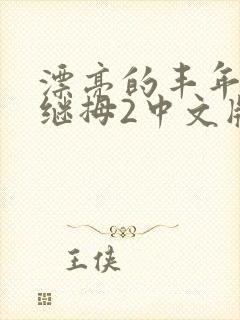 漂亮的丰年
继拇2中文
王侠